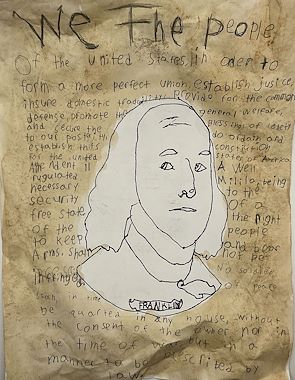 We The people
Of the united states, In oder to
form a more perfect union, establish justice,
insure domestic Provide for the common
defense, promote the general welfare,
and secure the Blessings of liberty
to our do ordain and
establish this constitution
for the united states of America
A well
regulated Militia, being
necessary to the
security Of a
free state the right
Of the people
to keep and bear
Arms, shall not be
infringed No soldier
shall, in time Of peace
be quartered in any house, without
the consent of the owner, nor in
the time of war, but in a
manner to be prescribed by
law
FRANKLIN